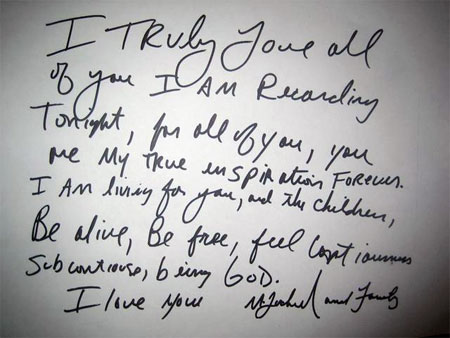 I TRULY Love all
of you I AM Recording
Tonight, for all of you, you
are My true inspiration Forever.
I AM living for you, and the children,
Be alive, Be free, feel
being GOD.
I love you and Family